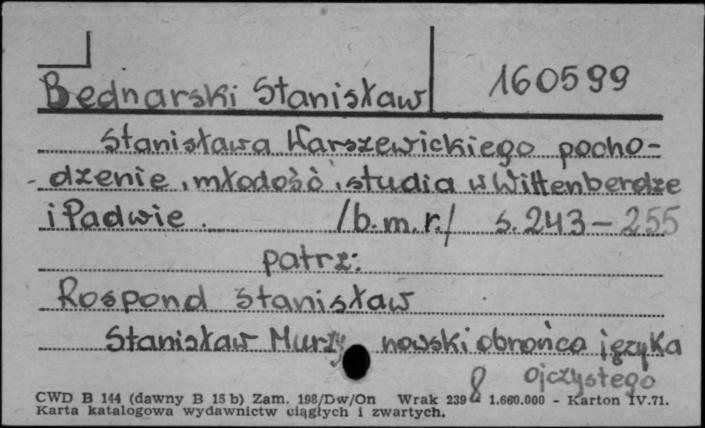 Bednarski Stanisław 160599
Stanisława Warszewickiego pocho-
dzenie, młodość i studia w Wittenberdze
i Padwie. /b.m.r./ s. 243-255
patrz:
Rospond Stanisław
Stanisław Murzynowski obrońca języka
ojczystego
CWD B 144 (dawny B 15 b) Zam. 198/Dw/On Wrak 239 1.660.000 - Karton IV.71.
Karta katalogowa wydawnictw ciągłych i zwartych.